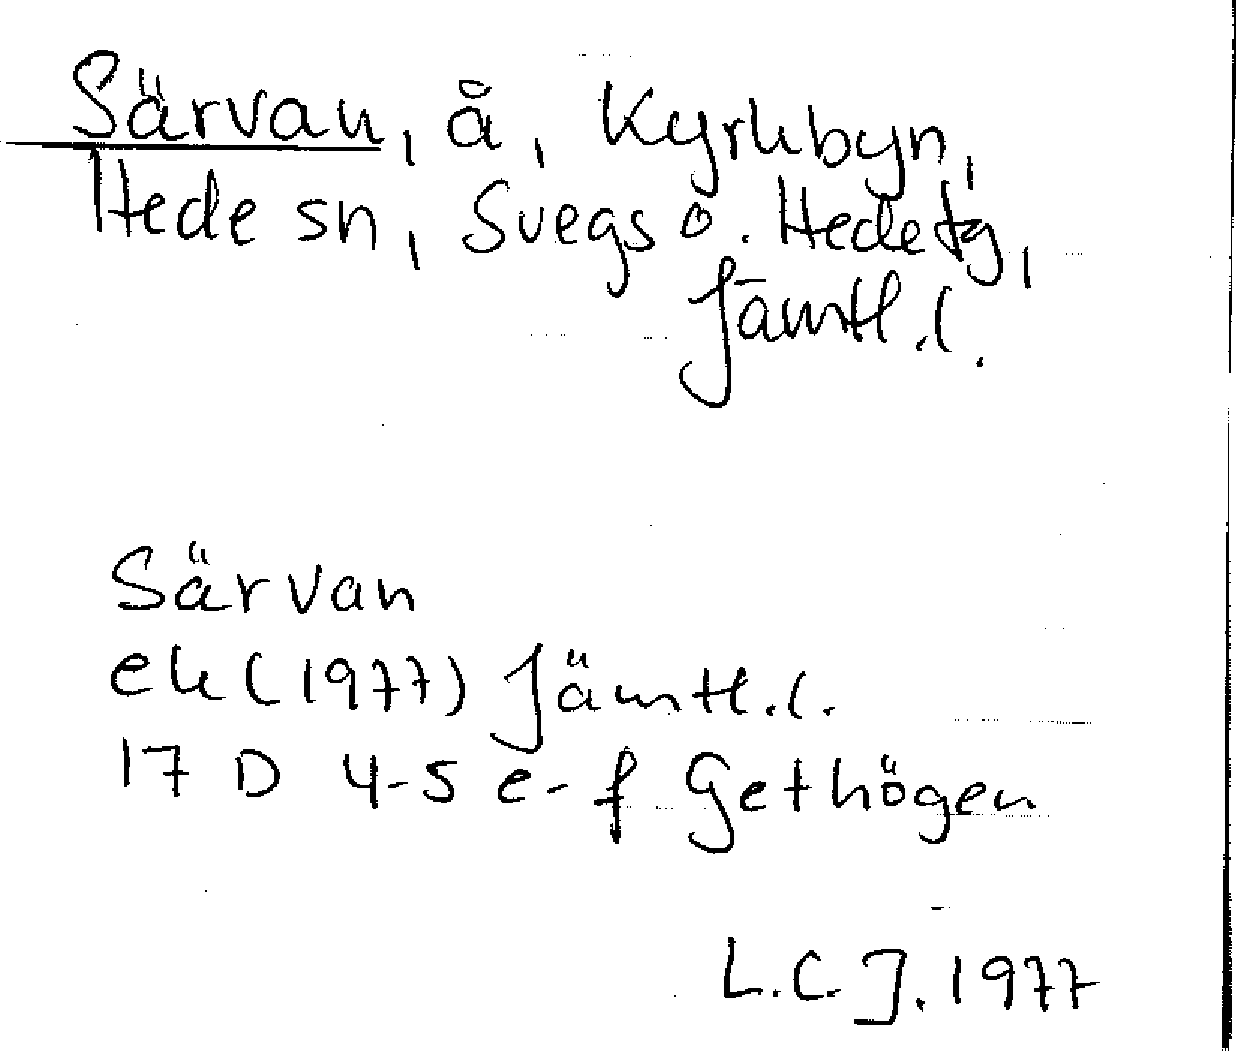 Särvan, å, Kyrkbyn,
Hede sn, Svegs o. Hede tg,
Jämtl. l.
Särvan
ek (1977) Jämtl. l.
17 D 4-5 e-f Gethögen
L.C.J. 1977